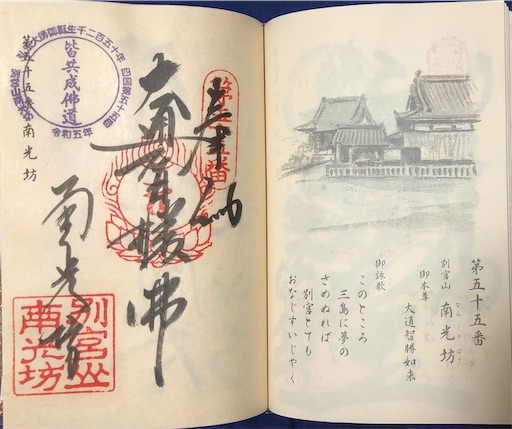 第五十五番
別宮山 南光坊
なんこうぼう
御本尊
大通智勝如来
御詠歌
このところ
三島に夢の
さめぬれば
別宮とても
おなじすいじやく
第五十五番
大通智勝佛
南光坊
別宮山
南光坊
弘法大師御誕生千二百五十年
皆共成佛道
令和五年
第五十五番 南光坊